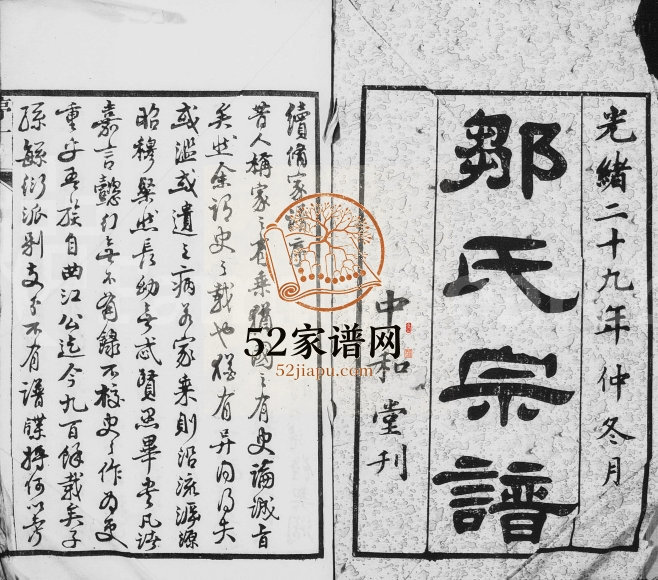 光緒二十九年仲冬月
鄒氏宗譜
中和堂刊
續脩家譜序
昔人稱家之有乘猶國之有史論誠旨
矣然余謂史之載也猶有異同得失
或濫或遺之病若家乘則沿流溯源
昭穆粲然長幼無忒賢愚畢書凡諸
嘉言懿行無不有錄不校史之作為更
重乎吾族自曲江公迄今九百餘載矣子
孫蕃衍派別支分不有譜牒將何以
序一
52家谱网
52jiapu.com